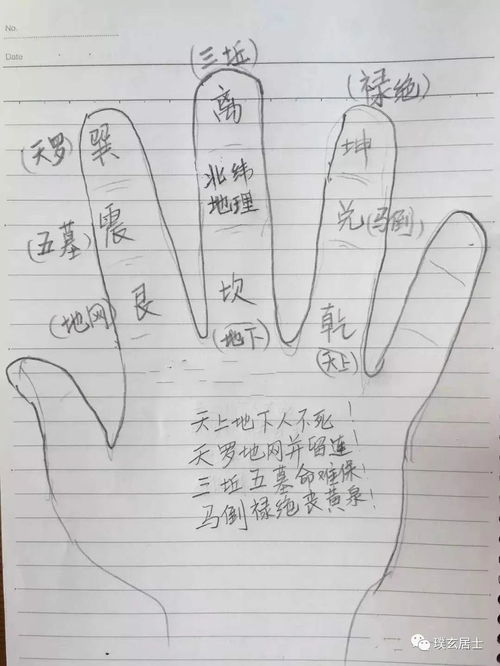 No.
Date
(三坵)
(禄绝)
(天罗) 巽 离 坤
北纬
地理
(五墓) 震 兑 (马倒)
(地网) 艮 坎 乾
(地下) (天上)
天上地下人不死！
天罗地网并留连！
三坵五墓命难保！
马倒禄绝丧黄泉！
璞玄居士